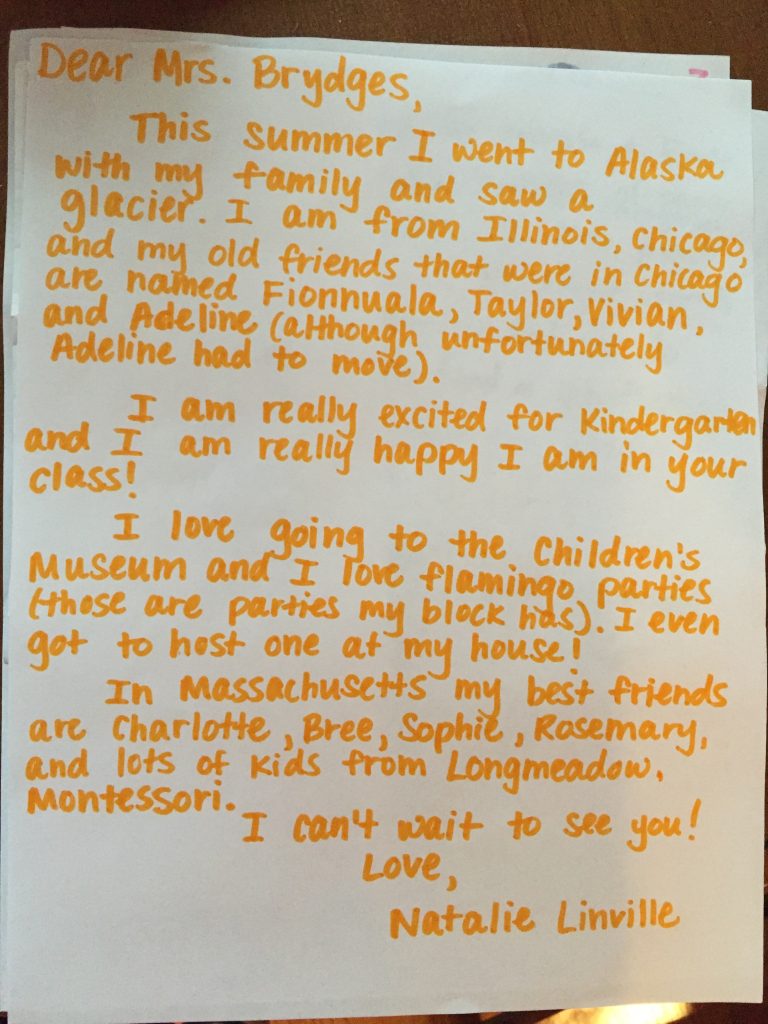 Dear Mrs. Brydges,
This summer I went to Alaska
with my family and saw a
glacier. I am from Illinois, Chicago,
and my old friends that were in Chicago
are named Fionnuala, Taylor, Vivian,
and Adeline (although unfortunately
Adeline had to move).
I am really excited for Kindergarten
and I am really happy I am in your
class!
I love going to the Children's
Museum and I love flamingo parties
(those are parties my block has). I even
got to host one at my house!
In Massachusetts my best friends
are Charlotte, Bree, Sophie, Rosemary,
and lots of kids from Longmeadow.
Montessori.
I can't wait to see you!
Love,
Natalie Linville